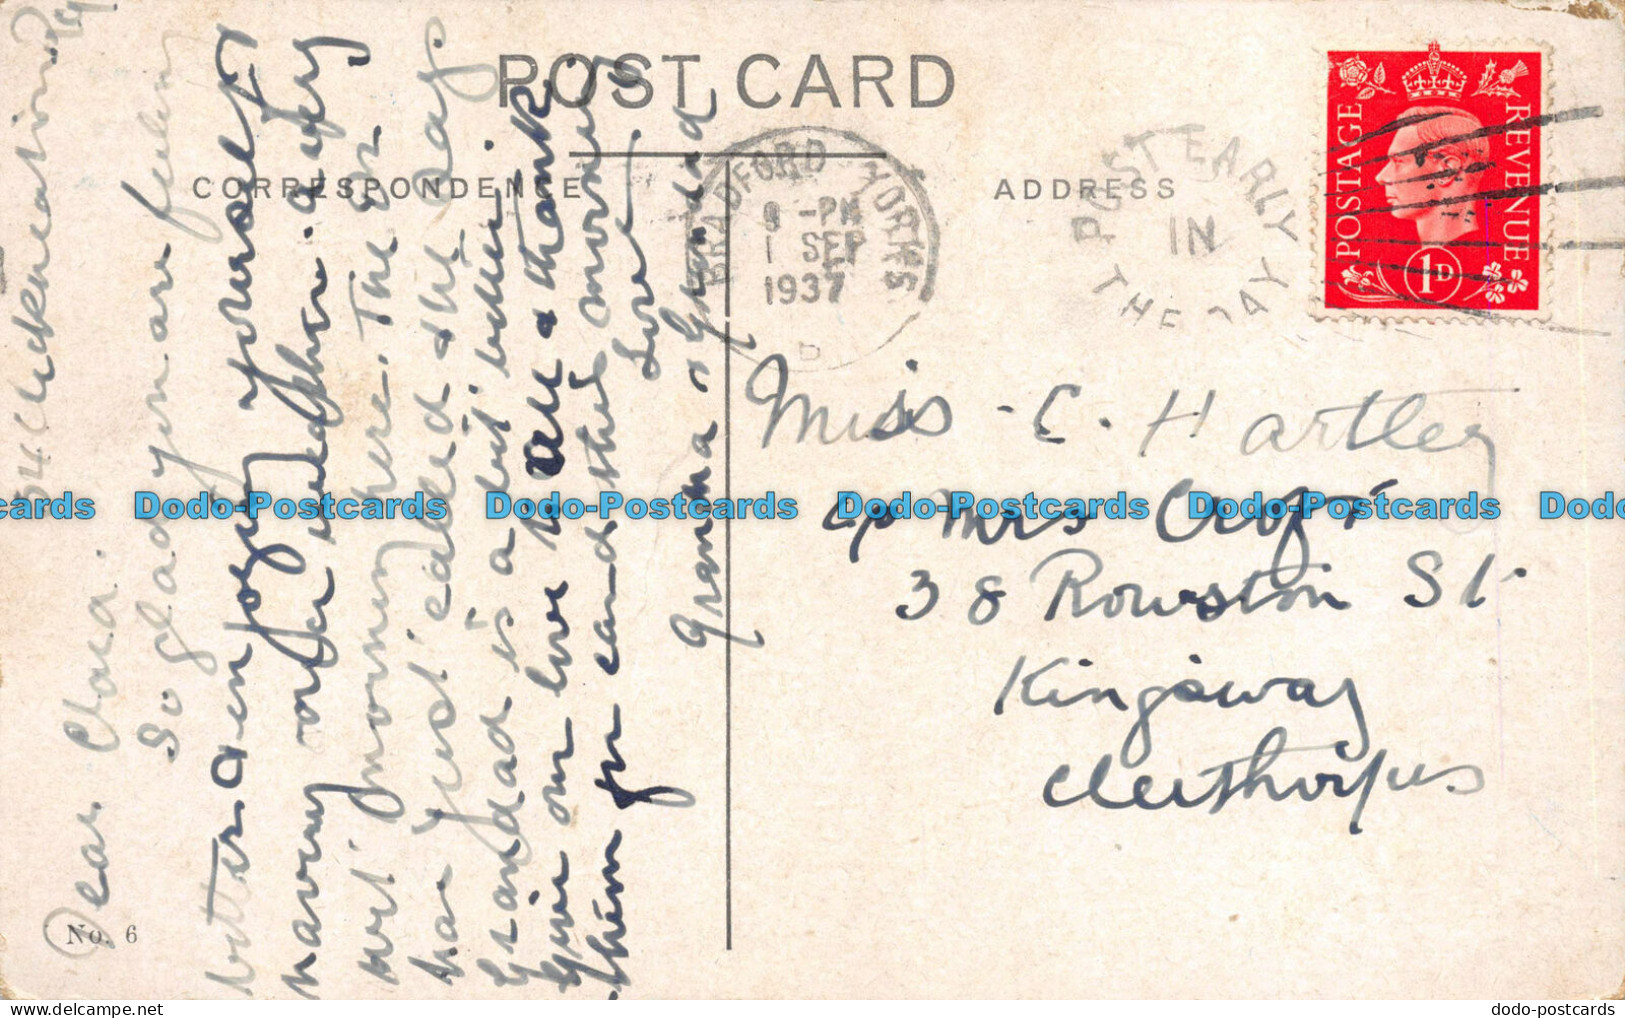 POST CARD
CORRESPONDENCE
ADDRESS
BRADFORD YORKS
9 -PM
1 SEP
1937
D
POST EARLY
IN
THE DAY
POSTAGE
REVENUE
1D
Miss C. Hartley
c/o Mrs
38 Rowston St
Kingsway
Cleethorpes
Dear Clara.
So glad you are feeling
better & enjoying yourself
having weather. a very
wet morning here. The Dr
has just called &
Grandad is a bit better.
Give our love to all & thank
them for card this morning
Love
Grandma & Grandad
No. 6
Dodo-Postcards Dodo-Postcards Dodo-Postcards Dodo-Postcards Dodo-Postcards
dodo-postcards